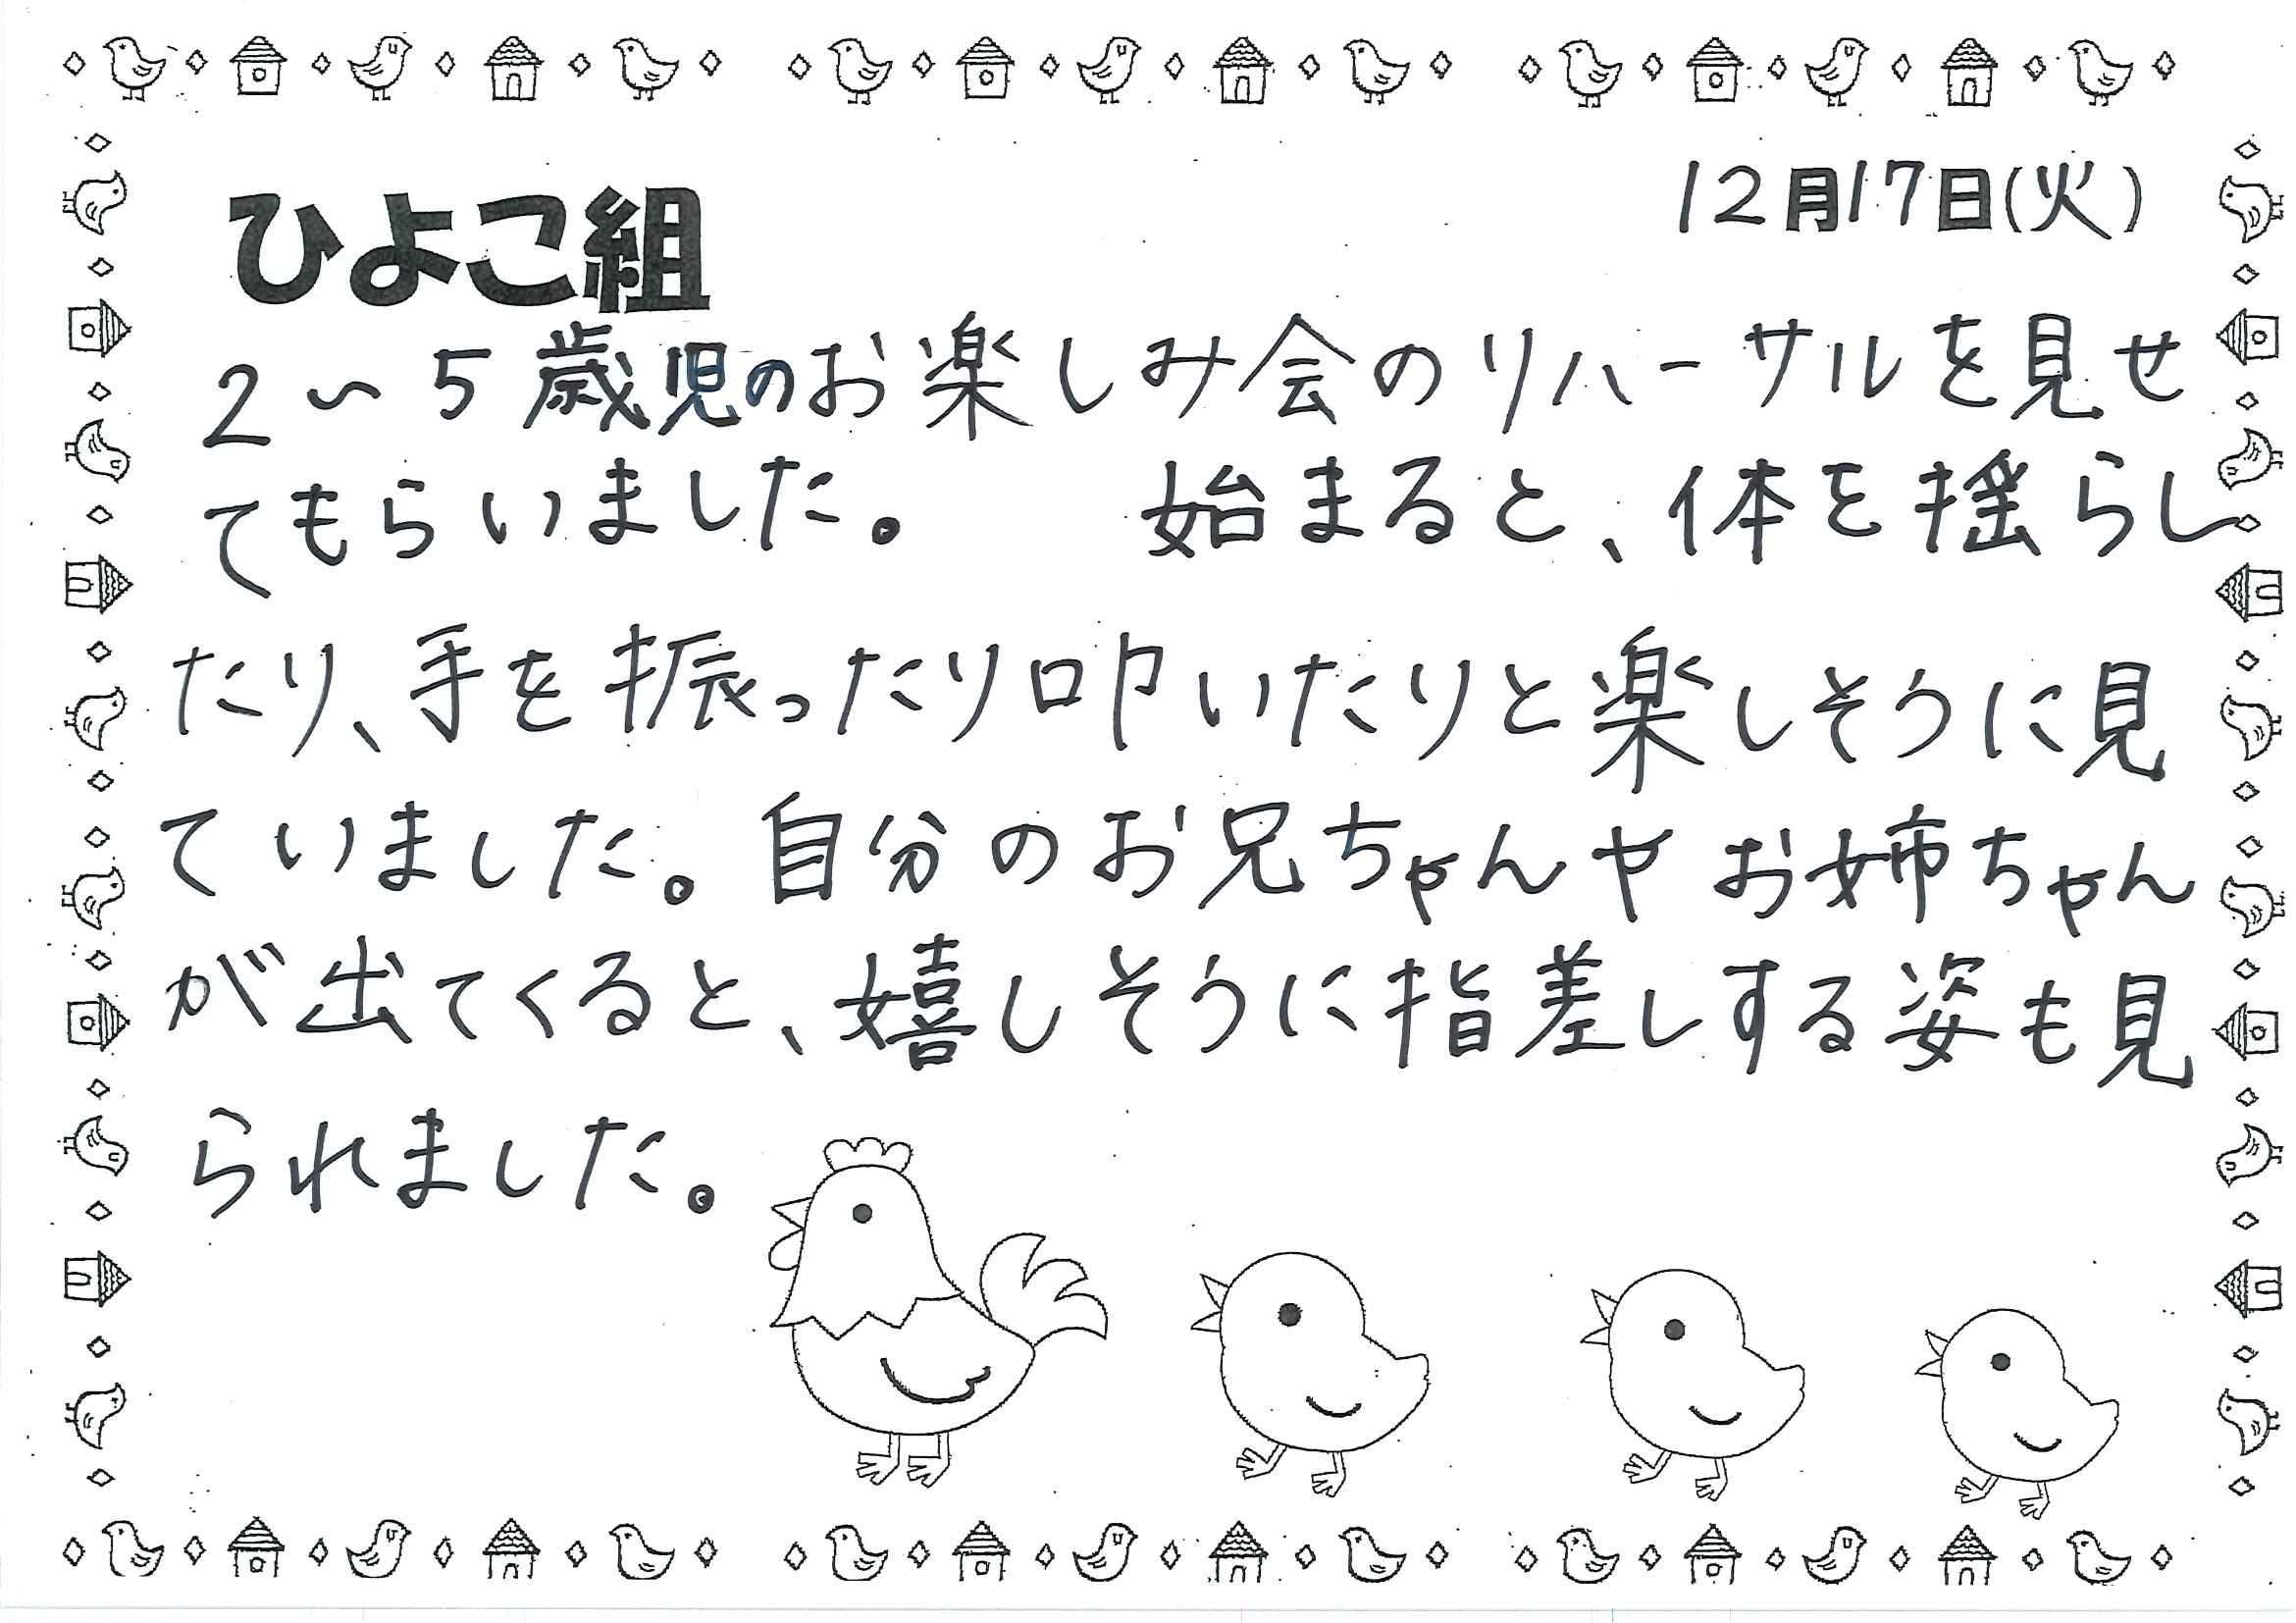 12月17日(火)
ひよこ組
2〜5歳児のお楽しみ会のリハーサルを見せ
てもらいました。 始まると、体を揺らし
たり、手を振ったり叩いたりと楽しそうに見
ていました。自分のお兄ちゃんやお姉ちゃん
が出てくると、嬉しそうに指差しする姿も見
られました。